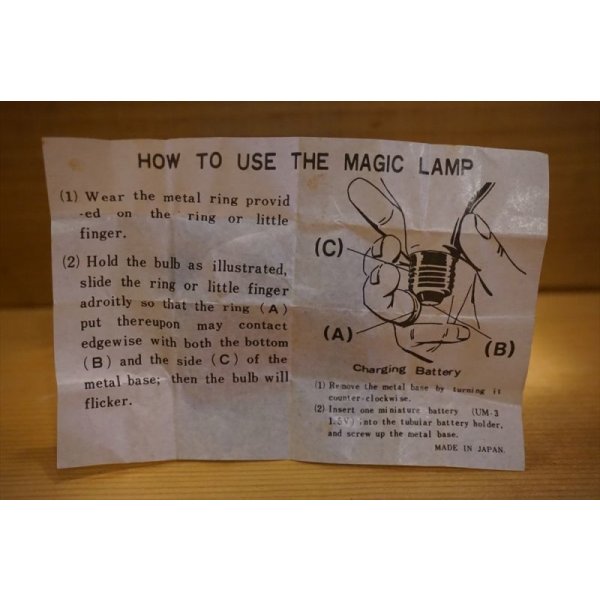 HOW TO USE THE MAGIC LAMP
(1) Wear the metal ring provid
-ed on the ring or little
finger.
(2) Hold the bulb as illustrated,
slide the ring or little finger
adroitly so that the ring (A)
put thereupon may contact
edgewise with both the bottom
(B) and the side (C) of the
metal base; then the bulb will
flicker.
(C)
(A)
(B)
Charging Battery
(1) Remove the metal base by turning it
counter-clockwise.
(2) Insert one miniature battery (UM-3
1.5V) into the tubular battery holder,
and screw up the metal base.
MADE IN JAPAN.